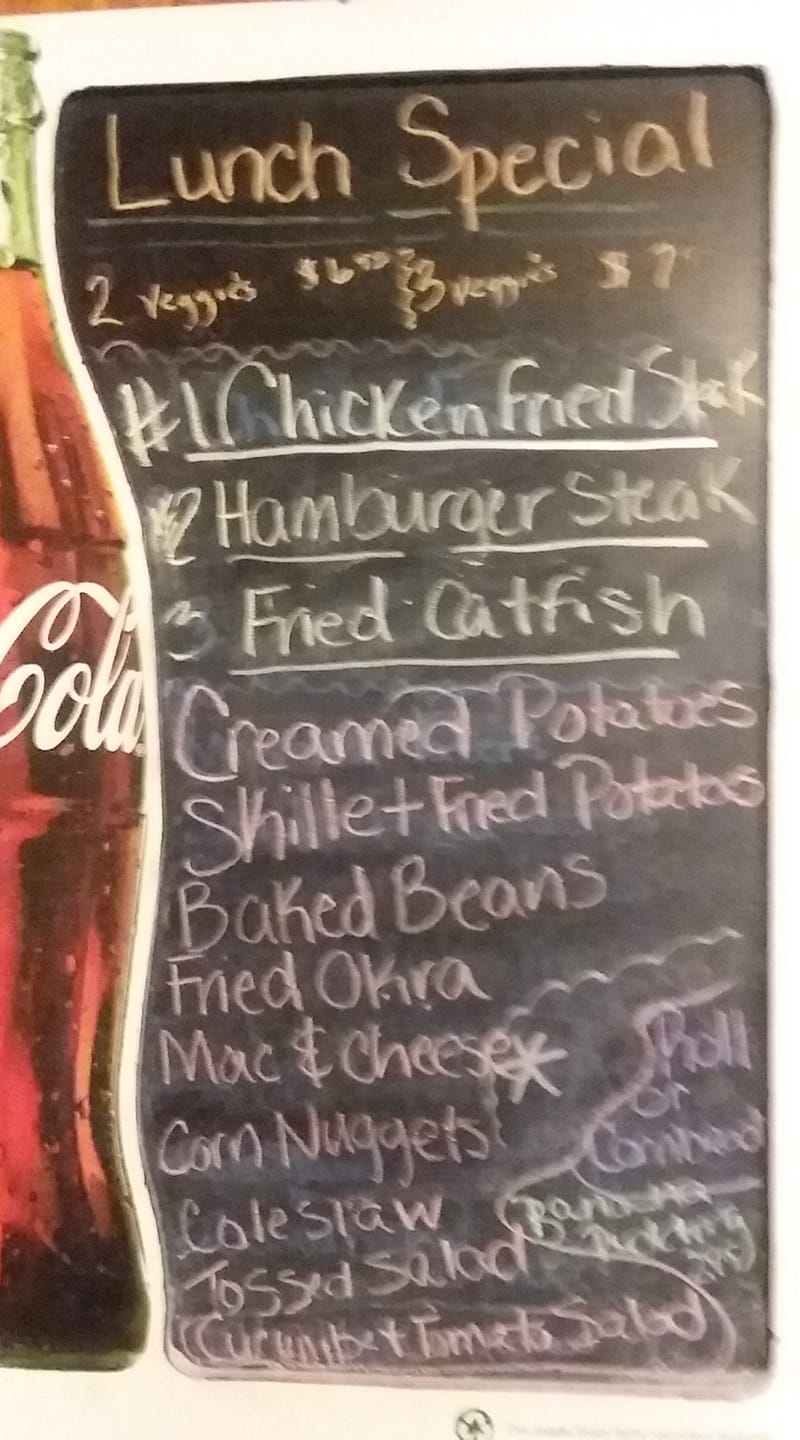 Lunch Special
2 veggies $6.00 3 veggies $7
#1 Chicken Fried Steak
#2 Hamburger Steak
3 Fried Catfish
Cola
Creamed Potatoes
Skillet Fried Potatoes
Baked Beans
Fried Okra
Mac & Cheese*
Roll
or
Cornbread
Corn Nuggets
Cole Slaw
banana
pudding
Tossed Salad
Cucumber + Tomato Salad